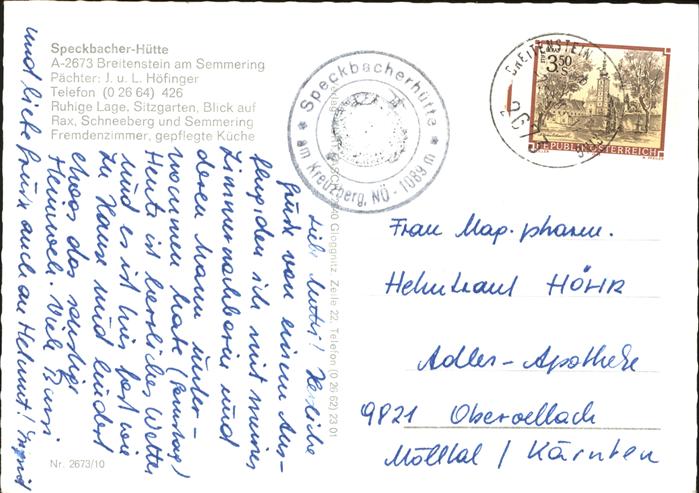 Speckbacher-Hütte
A-2673 Breitenstein am Semmering
Pächter: J. u. L. Höfinger
Telefon (0 26 64) 426
Ruhige Lage, Sitzgarten, Blick auf
Rax, Schneeberg und Semmering
Fremdenzimmer, gepflegte Küche
Speckbacherhütte
am Kreuzberg, NÖ - 1089 m
BREITENSTEIN
2673
3.50
S
REPUBLIK ÖSTERREICH
Liebe Mutti! Herzliche
Grüße von einem Aus-
flug, den ich mit meiner
Zimmernachbarin und
deren Mann unter-
nommen habe (Samstag)
Heute ist herrliches Wetter
und es ist hier fast wie
zu Hause und lindert
etwas das sonstige
Heimweh. Viele Bussi
und liebe Grüße auch an Helmut! Ingrid
Gloggnitz, Zeile 22, Telefon (0 26 62) 23 01
Frau Mag. pharm.
Heltraut HÖHR
Adler-Apotheke
9821 Obervellach
Mölltal / Kärnten
Nr. 2673/10